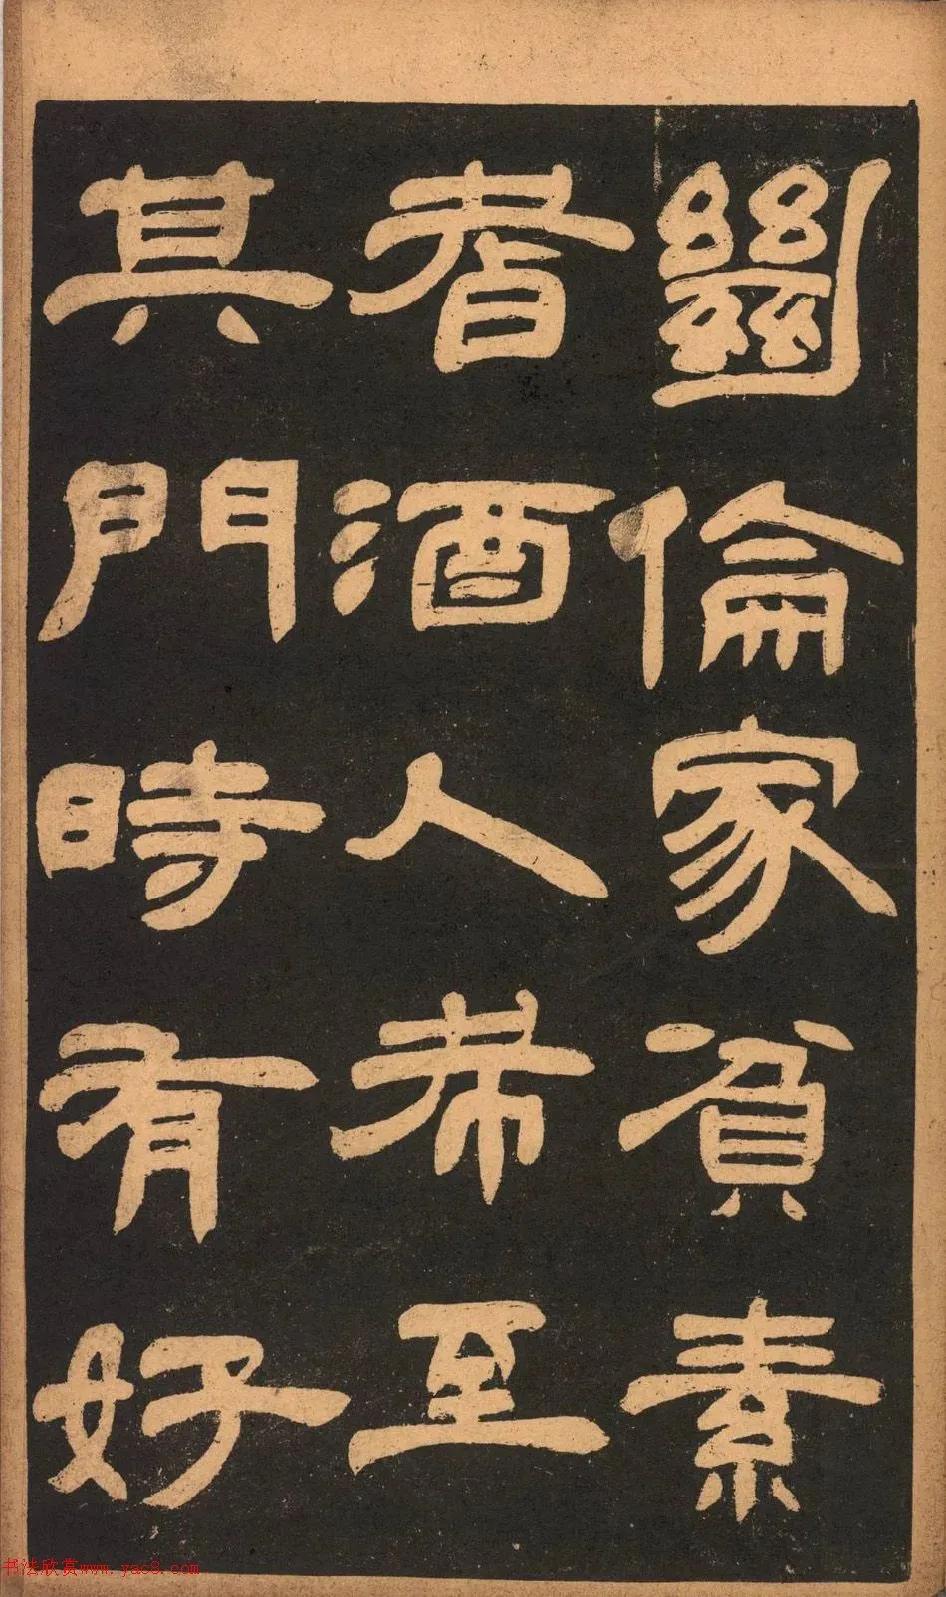 𢇍倫家貧素
耆酒人希至
其門時有好
书法欣赏www.yac8.com